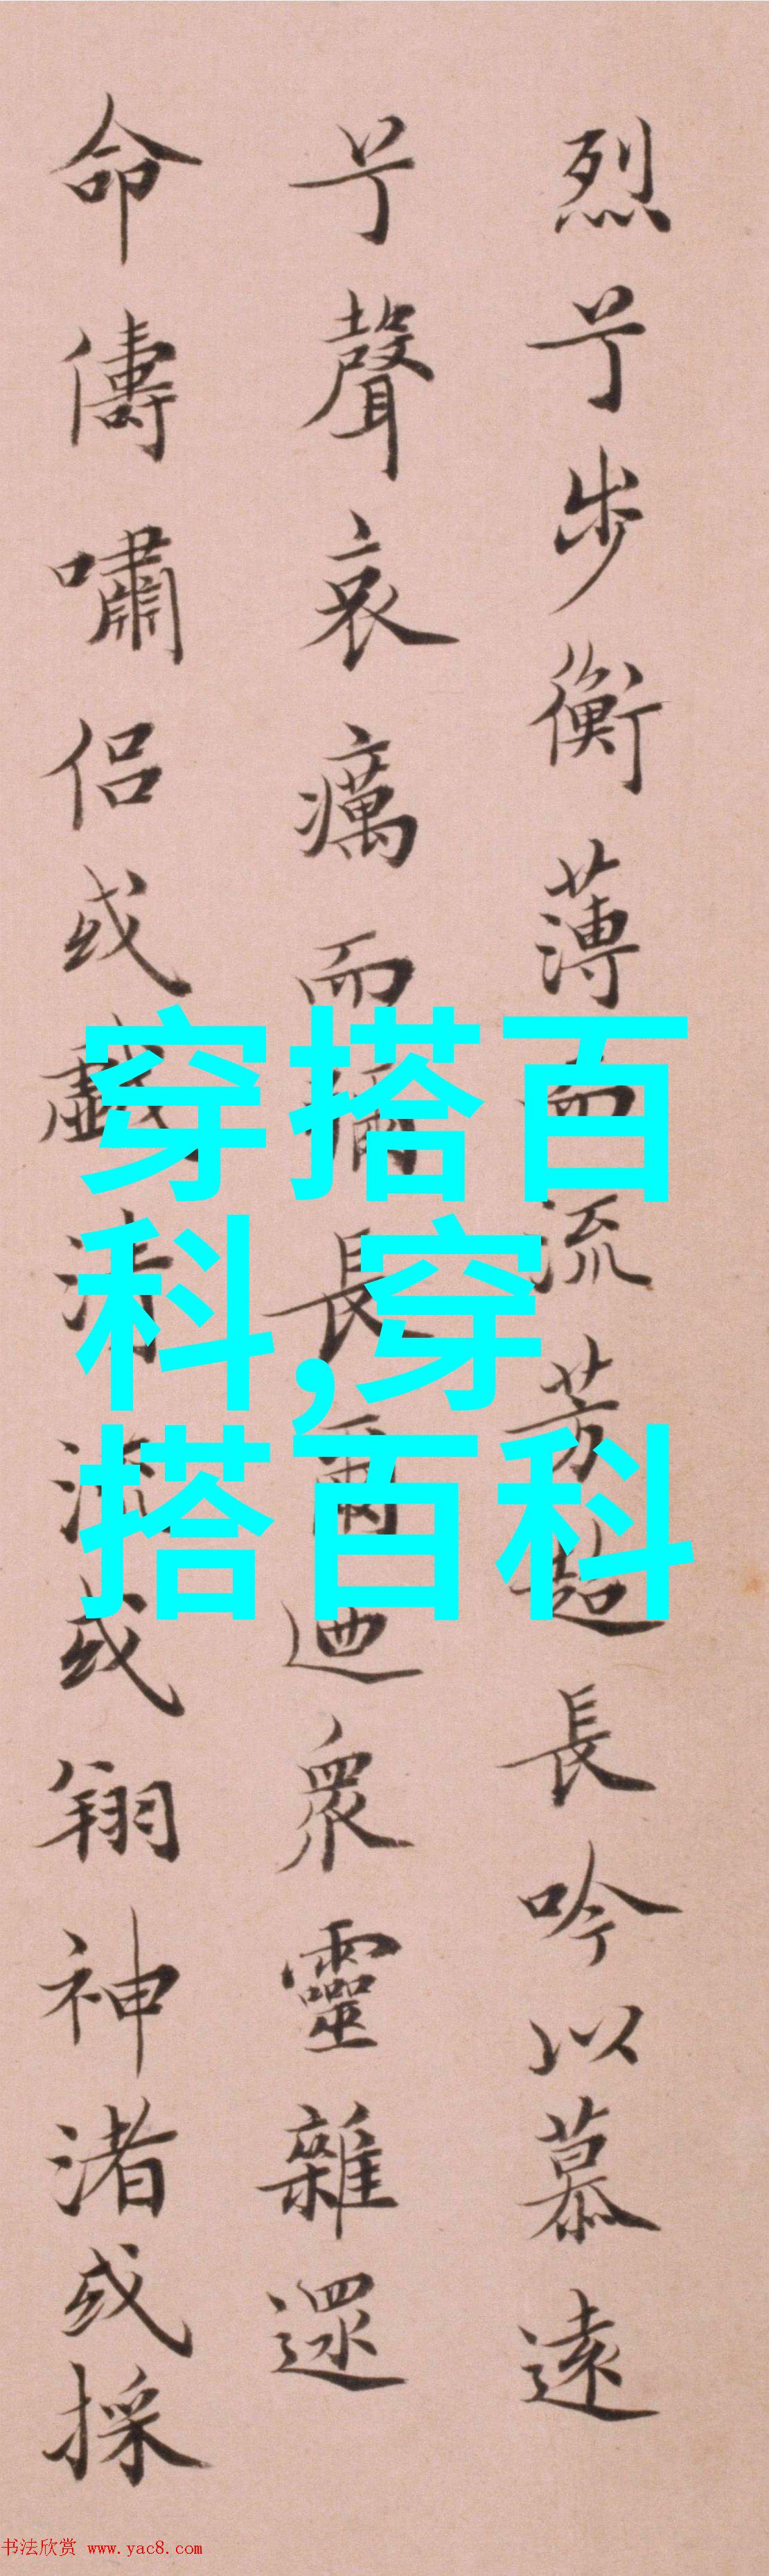 烈兮步衡薄而流芳超長吟以慕遠
兮聲哀癘而彌長爾迺衆靈雜遝
命儔嘯侶或戲清流或翔神渚或採
穿搭百
科,穿
搭百科
书法欣赏 www.yac8.com